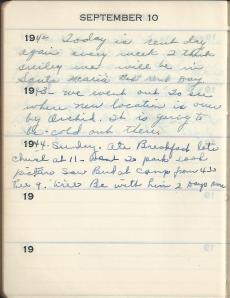 SEPTEMBER 10
1942 Today is rent day
again every week I think
smiley and will be in
Santa Maria next rent Day
1943- we went out to see
where new location is over
by Orchid. It is going to
be cold out there
1944. Sunday. ate Breakfast late
church at 11- went to park took
pictures saw Bud at camp from 4 to
9. Will Be with him 2 Days more
19
19